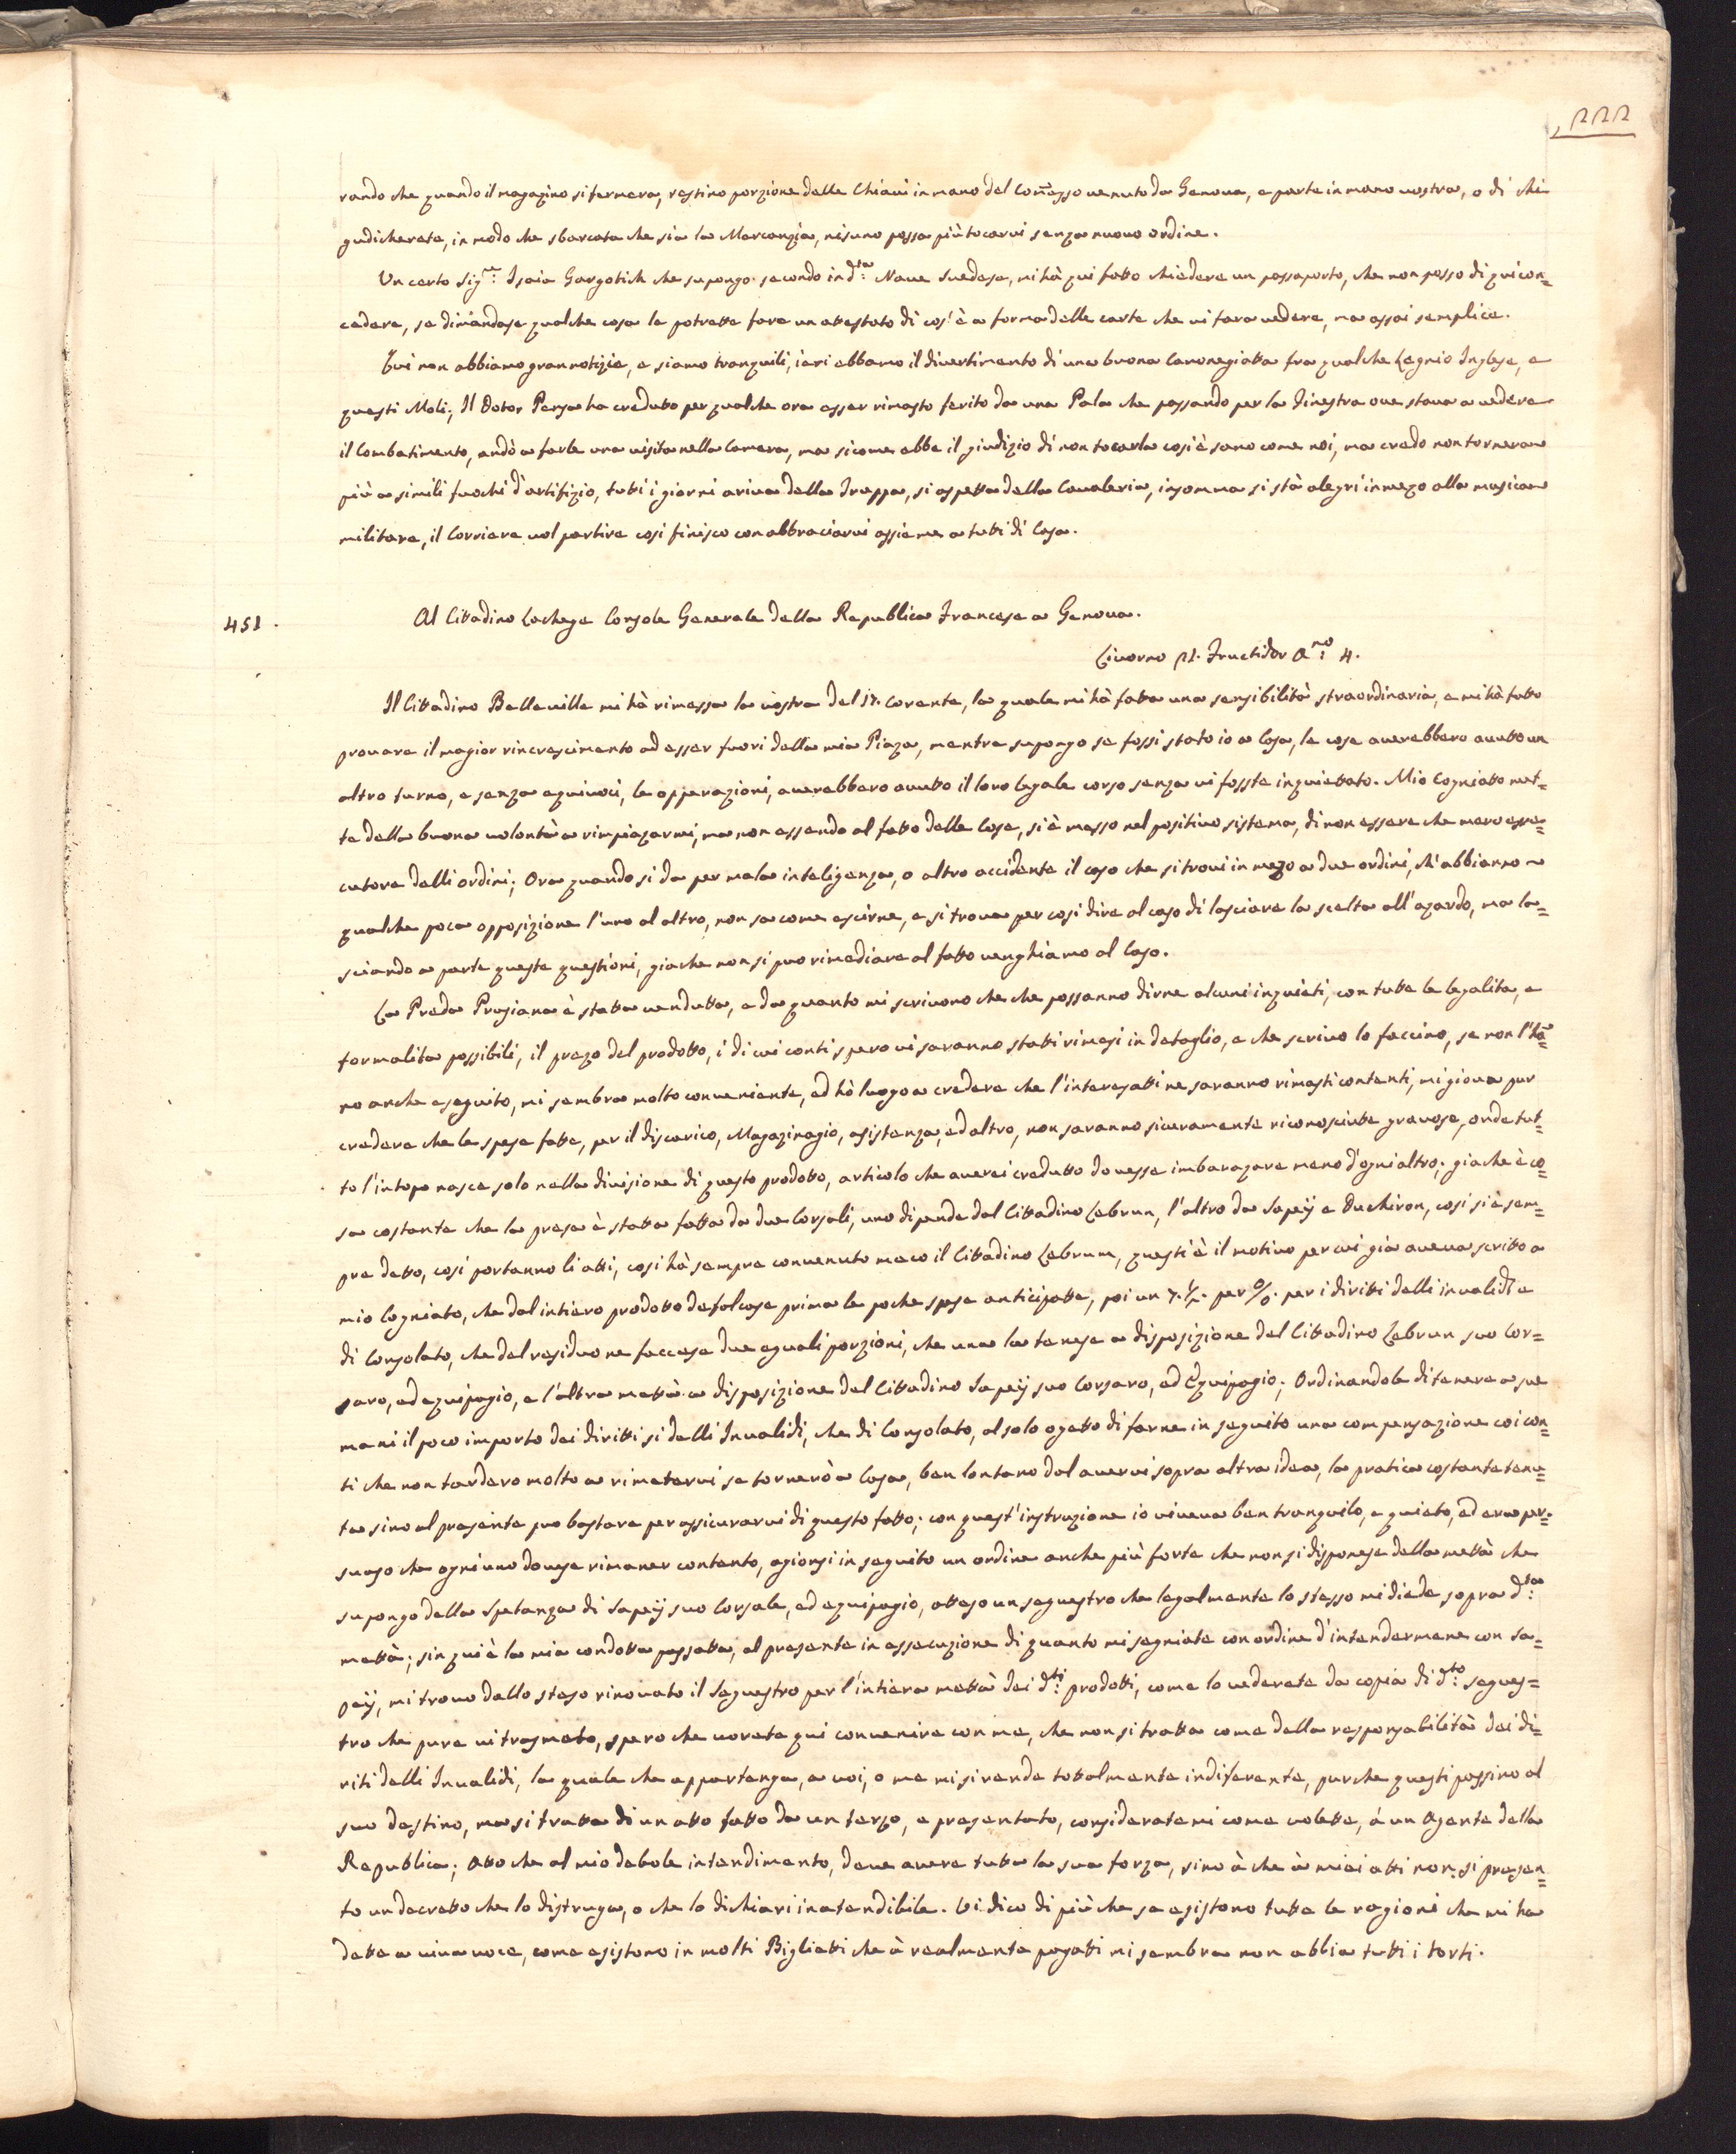 222
rando che quando il magazino si fermera, restino porzione delle Chiavi in mano del Com̃esso venuto da Genova, e parte in mano vostra, o di chi
gudicherete, in modo che sbarcata che sia la Marcanzia, nisuno possa più tocarvi senza nuovo ordine.
Un certo Sig:re Isaia Gargotich che supongo secondo in d:ta Nave Suedese, mi hà qui fatto chiedere un passaporto, che non posso di qui con=
cedere, se dimandase qualche cosa le potrette fare un attestato di cos' è a forma delle carte che vi fara vedere, ma assai semplice.
Qui non abbiamo gran notizie, e siamo tranquili, ieri ebbamo il divertimento di una buona Canonegiatta fra qualche Legnio Inglese, e
questi Moli; Il Dotor Persa ha creduto per qualche ora esser rimasto ferito da una Pala che passando per la Finestra ove stava a vedere
il Combatimento, andò a farle una visita nella Camera, ma sicome ebbe il giudizio di non tocarla così è sano come noi, ma credo non tornera
più a simili fuochi d'artifizio, tutti i giorni ariva della Truppa, si aspetta della Cavaleria, insomma si stà alegri in mezo alla musica
militare, il Corriere vol partire così finisco con abbraciarvi assieme a tutti di Casa.
451.
Al Cittadino Lachege Console Generale della Republica Francese a Genova.
Livorno 21. Fructidor A:no 4.
Il Cittadino Belleville mi hà rimessa la vostra del 17. Corente, la quale mi hà fatta una sensibilità straordinaria, e mi hà fatto
provare il magior rincrescimento ad esser fuori della mia Piaza, mentre supongo se fossi stato io a Casa, le cose averebbero avutto un
altro turno, e senza equivoci, le opperazioni, averebbero avutto il loro legale corso senza vi fosste inquiettato. Mio Cogniatto met=
te della buona volontà a rimpiazarmi, ma non essendo al fatto delle Cose, si è messo nel positivo sistema, di non essere che mero esse=
cutore delli ordini; Ora quando si da per mala inteligenza, o altro accidente il caso che si trovi in mezo a due ordini, ch' abbianno
qualche poca opposizione l'uno al altro, non sa come escirne, e si trova per così dire al caso di lasciare la scelta all'azardo, ma la=
sciando a parte queste questioni, giache non si puo rimediare al fatto venghiamo al Caso.
La Preda Prusiana è statta vendutta, e da quanto mi scrivono che che possanno dirne alcuni inquieti, con tutte le legalita, e
formalita possibili, il prezo del prodotto, i di cui conti spero vi saranno statti rimesi in detaglio, e che scrivo lo faccino, se non l'hà=
no anche eseguito, mi sembra molto conveniente, ed hò luogo a credere che l'interesatti ne saranno rimasti contenti, mi giova pur
credere che le spese fatte, per il discarico, Magazinagio, asistenza, ed altro, non saranno sicuramente riconosciute gravose, onde tut=
to l'intopo nasce solo nella divisione di questo prodotto, articolo che averei credutto dovesse imbarazare meno d'ogni altro; giache è co=
sa costante che la presa è statta fatta da due Corsali, uno dipende dal Cittadino Lebrun, l'altro da Sapeÿ e Duchiron, così si è sem=
pre detto, così portanno li atti, così hà sempre convenuto meco il Cittadino Lebrum, questi è il motivo per cui già aveva scritto a
mio Cogniato, che dal intiero prodotto defalcase prima le poche spese anticipatte, poi un 7.½. per %. per i diritti delli invalidi e
di Consolato, che del residuo ne faccese due eguali porzioni, che una la tenese a disposizione del Cittadino Lebrun suo Cor=
saro, ed equipagio, e l'altra mettà a disposizione del Cittadino Sapeÿ suo Corsaro, ed Equipagio; Ordinandole di tenere a sue
mani il poco importo dei diritti si delli Invalidi, che di Consolato, al solo ogetto di farne in seguito una compensazione coi con=
ti che non tardero molto a rimetervi se tornerò a Casa, ben lontano dal avervi sopra altra idea, la pratica costante tenu=
ta sino al presente puo bastare per assicurarvi di questo fatto; con quest' instruzione io viveva ben tranquilo, e quieto, ed era per=
suaso che ogni uno dovese rimaner contento, agionsi in seguito un ordine anche più forte che non si disponese della mettà che
supongo della Spetanza di Sapeÿ suo Corsale, ed equipagio, atteso un seguestro che legalmente lo stesso mi diede sopra d:ta
mettà; sin qui è la mia condotta passatta, al presente in essecuzione di quanto mi segniate con ordine d'intendermene con Sa=
peÿ, mi trovo dallo steso rinovato il Seguestro per l'intiera mettà dei d:ti prodotti, come lo vederete da copia di d:to segues=
tro che pure vi trasmeto, spero che vorete qui convenire con me, che non si tratta come della responsabilità dei di=
riti delli Invalidi, la quale che appartenga, a voi, o me mi si rende totalmente indiferente, purche questi passino al
suo destino, ma si tratta di un atto fatto da un terzo, e presentato, consideratemi come volette, à un Agente della
Republica; Atto che al mio debole intendimento, deve avere tutta la sua forza, sino à che à miei atti non si presen=
to un decretto che lo distruga, o che lo dichiari inatendibile. Vi dico di più che se esistono tutte le ragioni che mi ha
dette a viva voce, come esistono in molti Bigliatti che à realmente pagatti mi sembra non abbia tutti i torti.